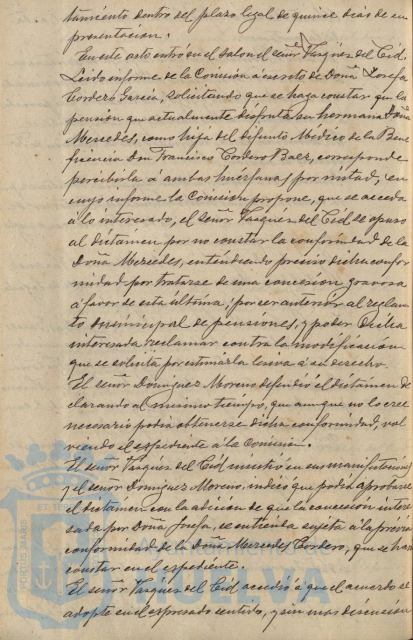 tamiento dentro del plazo legal de quince dias de su
presentacion.
En este acto entró en el salon el señor Vasquez del Cid.
Leido informe de la Comision á escrito de Doña Josefa
Cordero Garcia, solicitando que se haga constar que la
pensión que actualmente disfruta su hermana Doña
Mercedes, como hija del difunto Médico de la Bene
ficencia Don Francisco Cordero Baez, corresponde
percibirla á ambas huérfanas por mitad, en
cuyo informe la Comisión propone, que se acceda
á lo interesado, el señor Vasquez del Cid se opuso
al dictamen por no constar la conformidad de la
Doña Mercedes, entendiendo preciso dicha confor
midad por tratarse de una concesion gravosa
á favor de esta ultima, por ser anterior al reglamen
to municipal de pensiones, y poder dicha
interesada reclamar contra la modificación
que se solicita por estimarla lesiva á su derecho.
El señor Dominguez Moreno defendió el dictamen de
clarando al mismo tiempo, que aunque no lo cree
necesario podia obtenerse dicha conformidad, vol
viendo el espediente á la Comision.
El señor Vasquez del Cid insistió en sus manifestaciones
y el señor Dominguez Moreno, indicó que podia aprobarse
el dictamen con la adicion de que la concesión intere
sada por Doña Josefa, se entienda sujeta á la previa
conformidad de la Doña Mercedes Cordero, que se hará
constar en el espediente.
El señor Vasquez del Cid accedió á que el acuerdo se
adopte en el espresado sentido, y sin mas discusion
PORTUS MARIS
ET TE
HUELVA